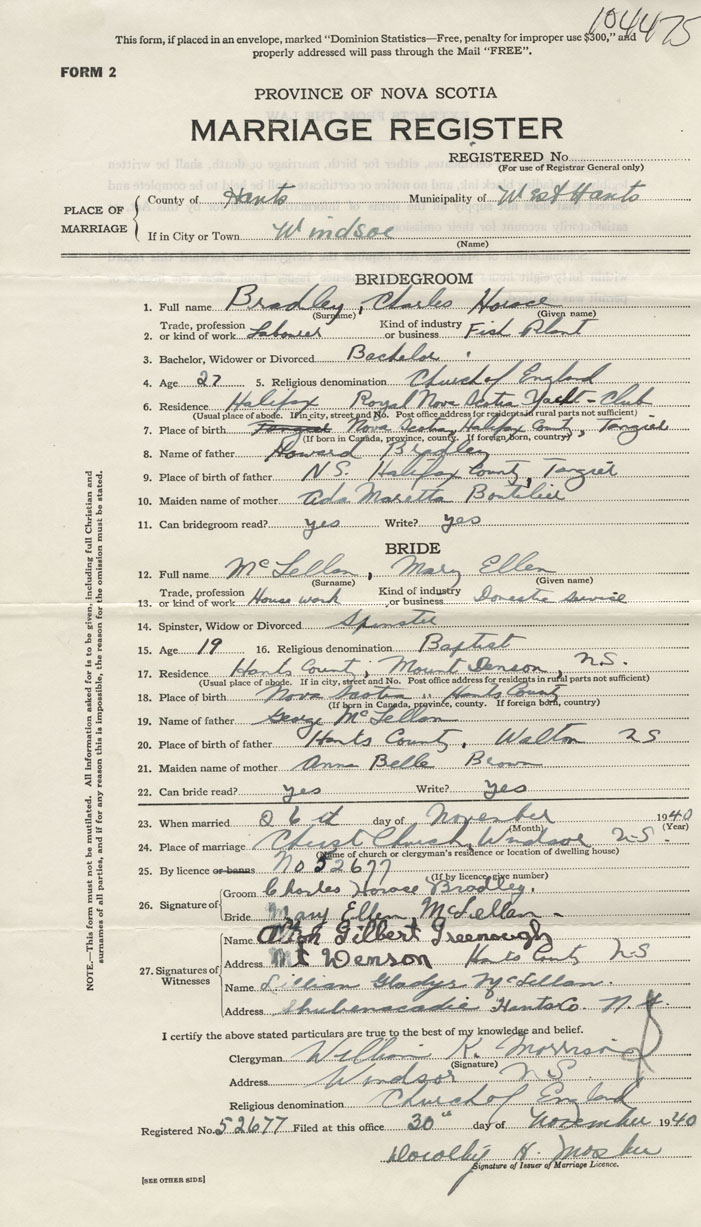 104475
This form, if placed in an envelope, marked "Dominion Statistics—Free, penalty for improper use $300," and
properly addressed will pass through the Mail "FREE".
FORM 2
PROVINCE OF NOVA SCOTIA
MARRIAGE REGISTER
REGISTERED No.
(For use of Registrar General only)
PLACE OF MARRIAGE
County of Hants Municipality of West Hants
If in City or Town Windsor
(Name)
BRIDEGROOM
1. Full name Bradley, Charles Horace
(Surname) (Given name)
2. Trade, profession or kind of work Labourer Kind of industry or business Fish Plant
3. Bachelor, Widower or Divorced Bachelor
4. Age 27 5. Religious denomination Church of England
6. Residence Halifax Royal Nova Scotia Yacht-Club
(Usual place of abode. If in city, street and No. Post office address for residents in rural parts not sufficient)
7. Place of birth Tangier Nova Scotia, Halifax County, Tangier
(If born in Canada, province, county. If foreign born, country)
8. Name of father Howard Bradley
9. Place of birth of father N.S. Halifax County, Tangier
10. Maiden name of mother Ada Maretta Boutilier
11. Can bridegroom read? yes Write? yes
BRIDE
12. Full name McLellan, Mary Ellen
(Surname) (Given name)
13. Trade, profession or kind of work House work Kind of industry or business Domestic Service
14. Spinster, Widow or Divorced Spinster
15. Age 19 16. Religious denomination Baptist
17. Residence Hants County, Mount Denson, N.S.
(Usual place of abode. If in city, street and No. Post office address for residents in rural parts not sufficient)
18. Place of birth Nova Scotia, Hants County
(If born in Canada, province, county. If foreign born, country)
19. Name of father George McLellan
20. Place of birth of father Hants County, Walton NS
21. Maiden name of mother Anna Belle Brown
22. Can bride read? yes Write? yes
23. When married 26th day of November 1940
(Month) (Year)
24. Place of marriage Christ Church, Windsor N.S.
(Name of church or clergyman's residence or location of dwelling house)
25. By licence or banns No 52677
(If by licence, give number)
26. Signature of
Groom Charles Horace Bradley.
Bride Mary Ellen McLellan
27. Signatures of Witnesses
Name Gilbert Greenough
Address Mt Denson Hants County N.S
Name Lillian Gladys McLellan.
Address Shubenacadie Hants Co. N.S.
I certify the above stated particulars are true to the best of my knowledge and belief.
Clergyman William K. Morrison
(Signature)
Address Windsor N.S.
Religious denomination Church of England
Registered No. 52677 Filed at this office 30th day of November 1940
Dorothy H. Mosher
Signature of Issuer of Marriage Licence.
[SEE OTHER SIDE]
NOTE.—This form must not be mutilated. All information asked for is to be given, including full Christian and
surnames of all parties, and if for any reason this is impossible, the reason for the omission must be stated.